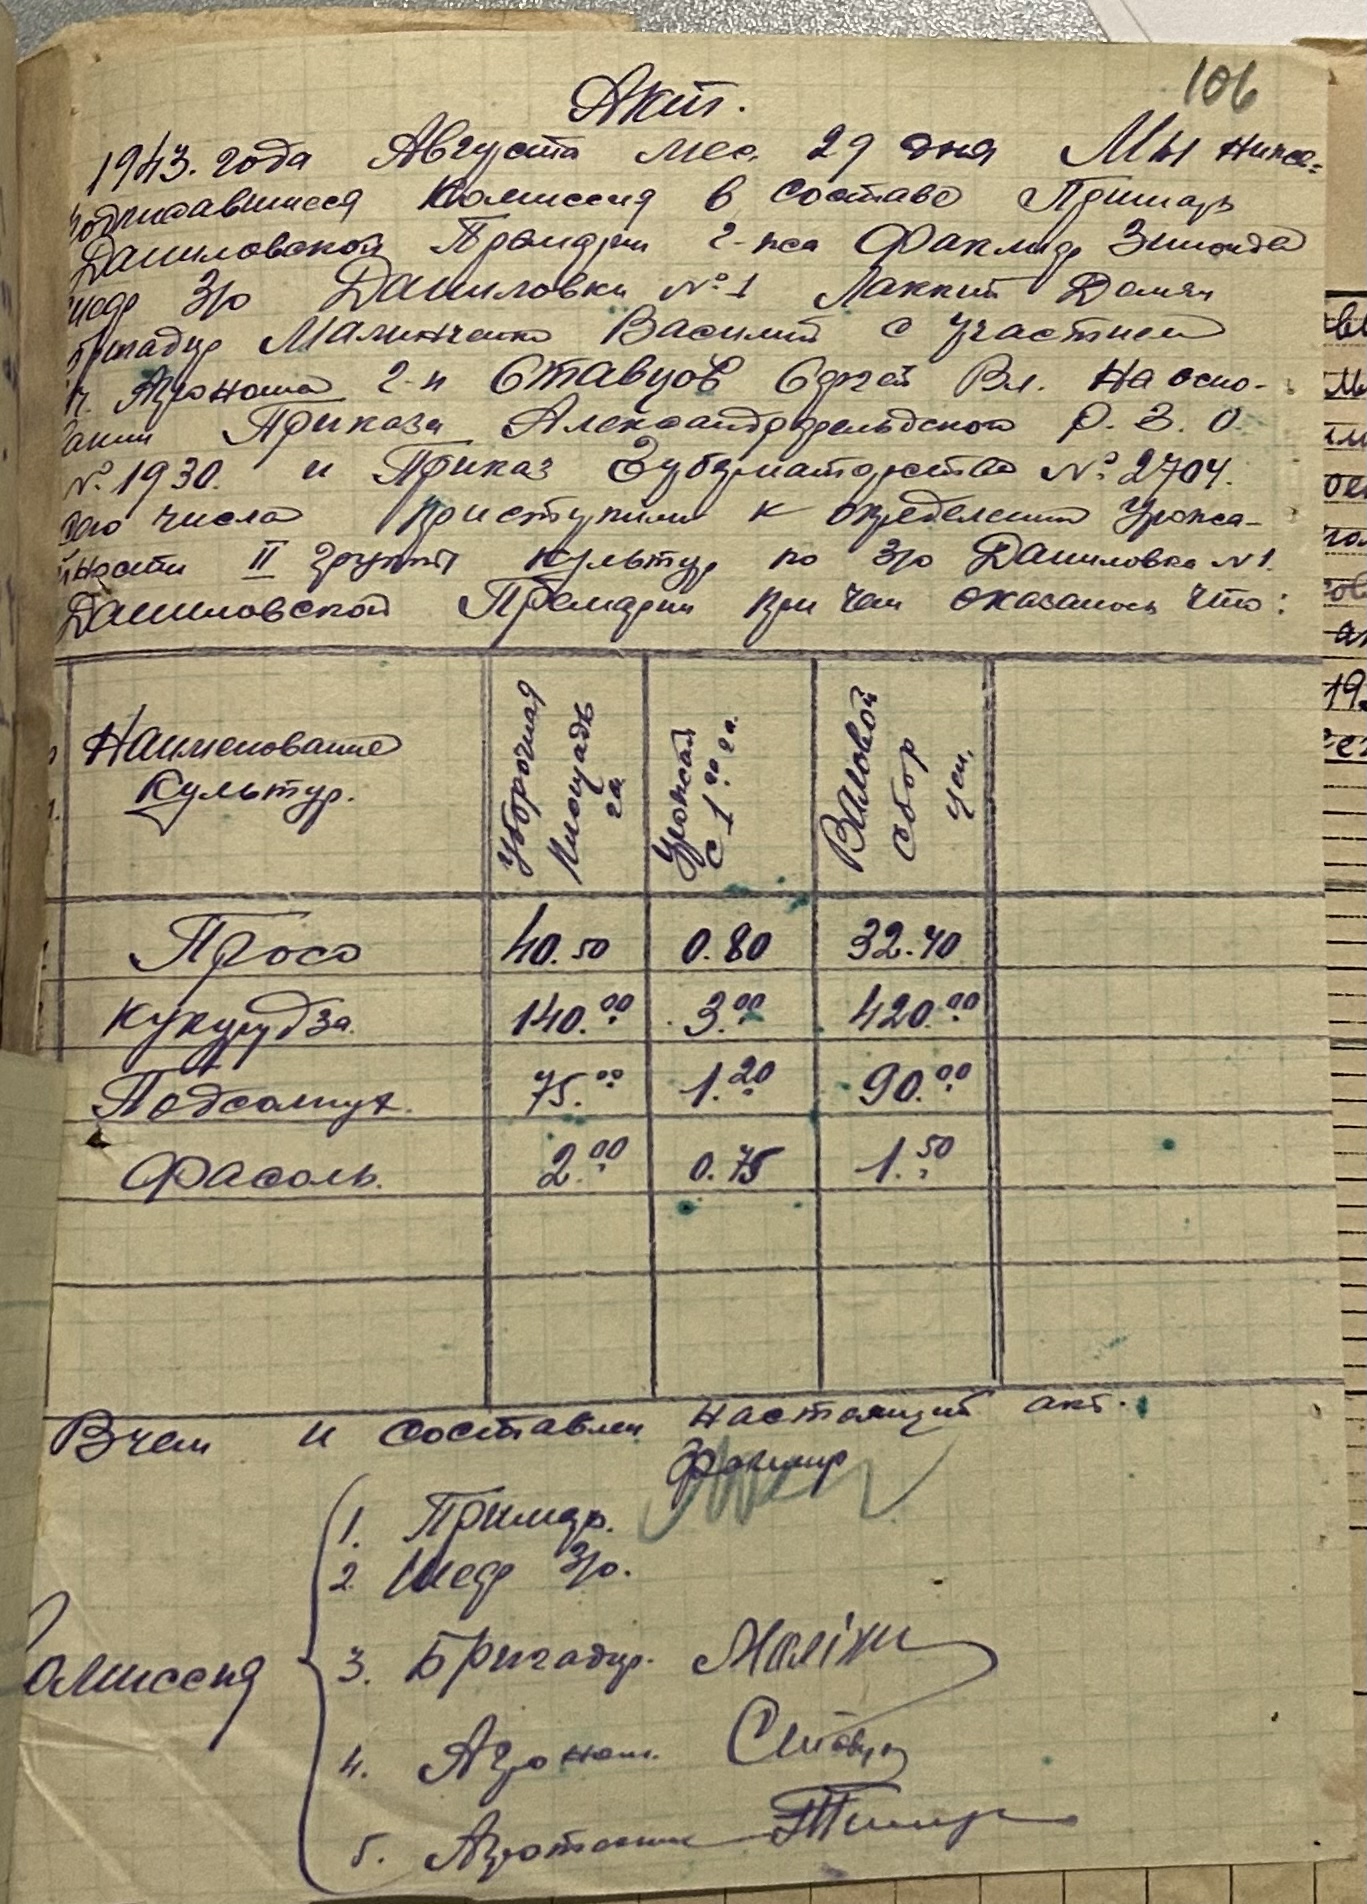 106
Акт.
1943. года Августа мес. 29 дня Мы ниже=
подписавшиеся Комиссия в составе Примарь
Даниловской Примарии г-на Зигмонда
Шеф З/о Даниловки № 1 Демян
Бригадир Малинченко Василий с участием
Агронома г-н Ставцов Сергей Вл. На осно-
вании Приказа Александрфельдского Р. З. О.
№ 1930. и Приказ Губернаторства № 2704.
сего числа приступили к определению Урожа-
йности II групп культур по З/о Даниловка № 1.
Даниловской Примарии при чем оказалось что:
Наименование
Культур.
Уборочная
площадь
га
Урожай
с 1 го га.
Валовой
сбор
цен.
Просо 40.50 0.80 32.40
Кукурудза. 140.00 3.00 420.00
Подсолнух. 75.00 1.20 90.00
Фасоль. 2.00 0.75 1.50
В чем и составлен настоящий акт.
Комиссия
1. Примарь.
2. Шеф З/о.
3. Бригадир. Малін
4. Агроном. Ставцо
5. Агротехник